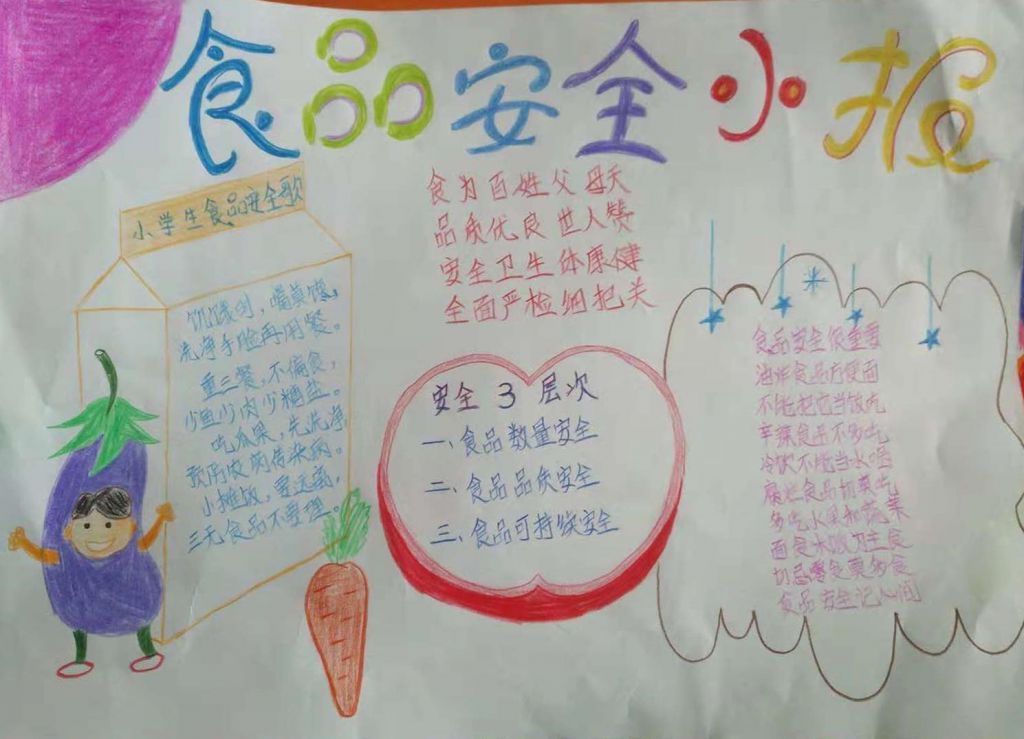 食品安全小报
小学生食品安全歌
饥饿到，嘴莫馋，
洗净手脸再用餐。
重三餐，不偏食，
少鱼少肉少糖盐。
吃瓜果，先洗净
预防收肉传染病。
小摊饭，要远离，
三无食品不要理。
食为百姓父母天
品质优良世人赞
安全卫生体康健
全面严检细把关
安全3层次
一、食品数量安全
二、食品品质安全
三、食品可持续安全
食品安全很重要
油炸食品方便面
不能把它当饭吃
辛辣食品不多吃
冷饮不能当水喝
腐烂食品切莫吃
多吃水果和蔬菜
面食水饭为主食
切忌零食莫多食
食品安全记心间